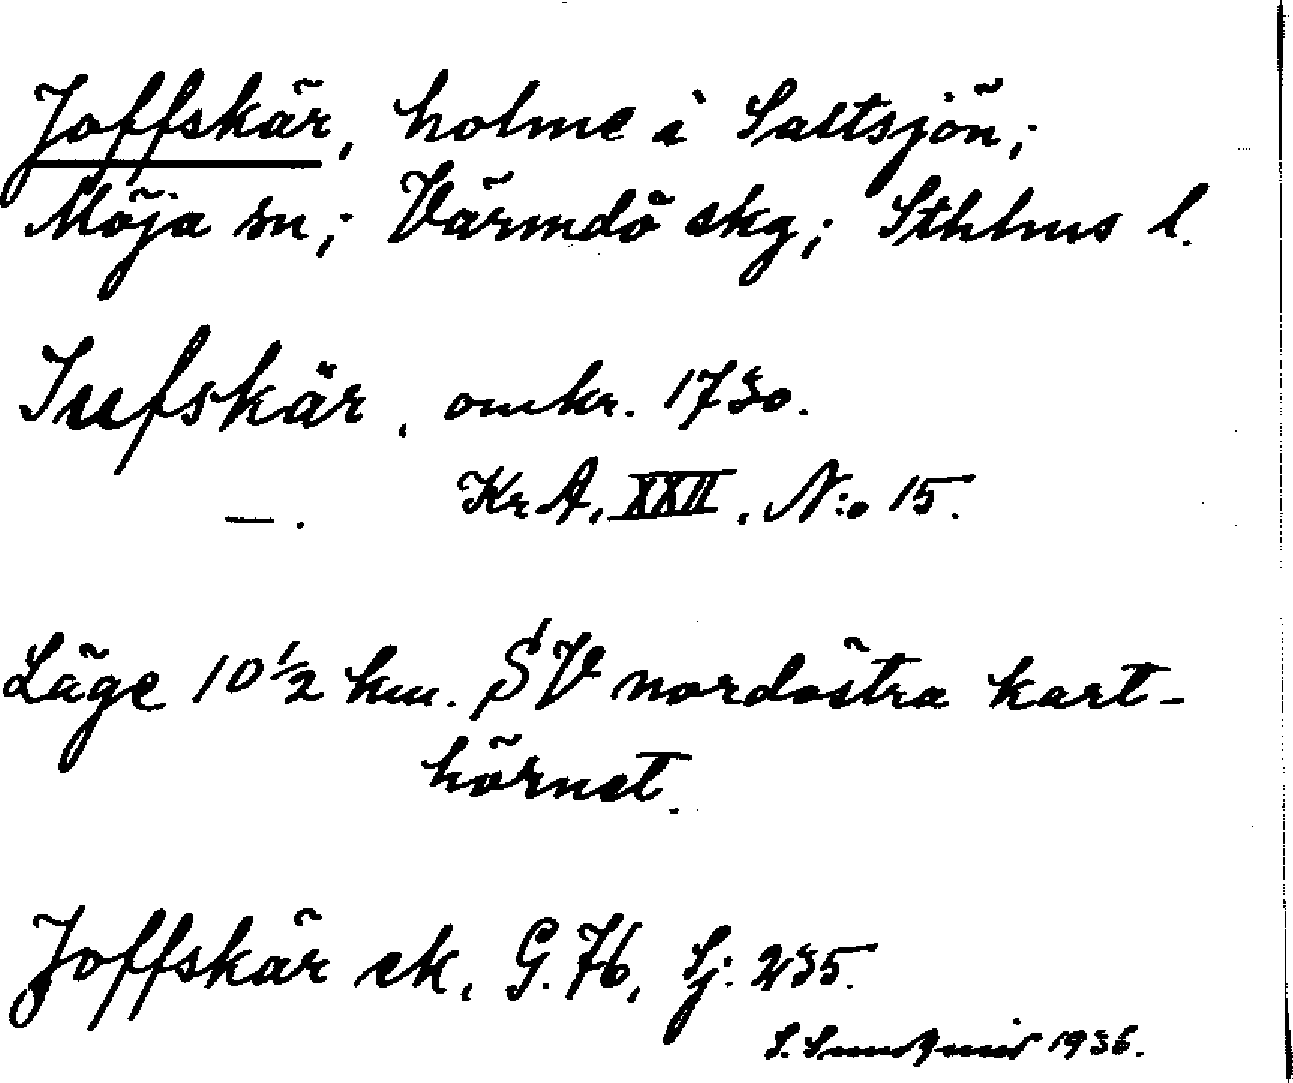 Joffskär, holme i Saltsjön;
Möja sn; Värmdö skg; Sthlms l.
Iufskär, omkr. 1730.
—. Kr A, XXII, N:o 15.
Läge 10 1/2 km. SV nordöstra kart-
hörnet.
Joffskär ek, G. 76, Sj: 235.
S. 1936.